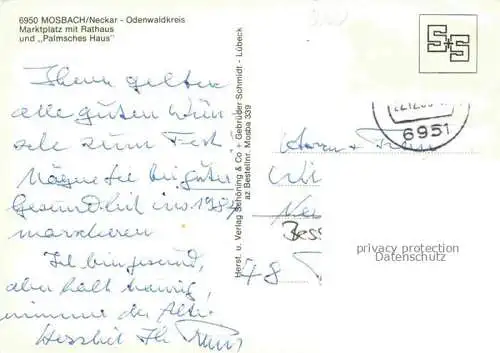 6950 MOSBACH/Neckar - Odenwaldkreis
Marktplatz mit Rathaus
und „Palmsches Haus"
Ihnen gelten
alle guten Wün
sche zum Fest
Mögen Sie bei guter
Gesundheit ins 1984
marschieren
Ich bin gesund,
aber halt traurig,
nimmer der Alte.
Herzlich Ihr
Herst. u. Verlag Schöning & Co + Gebrüder Schmidt - Lübeck
az Bestellnr. Mosba 339
S+S
6951
Herrn + Frau
Bess
48
privacy protection
Datenschutz